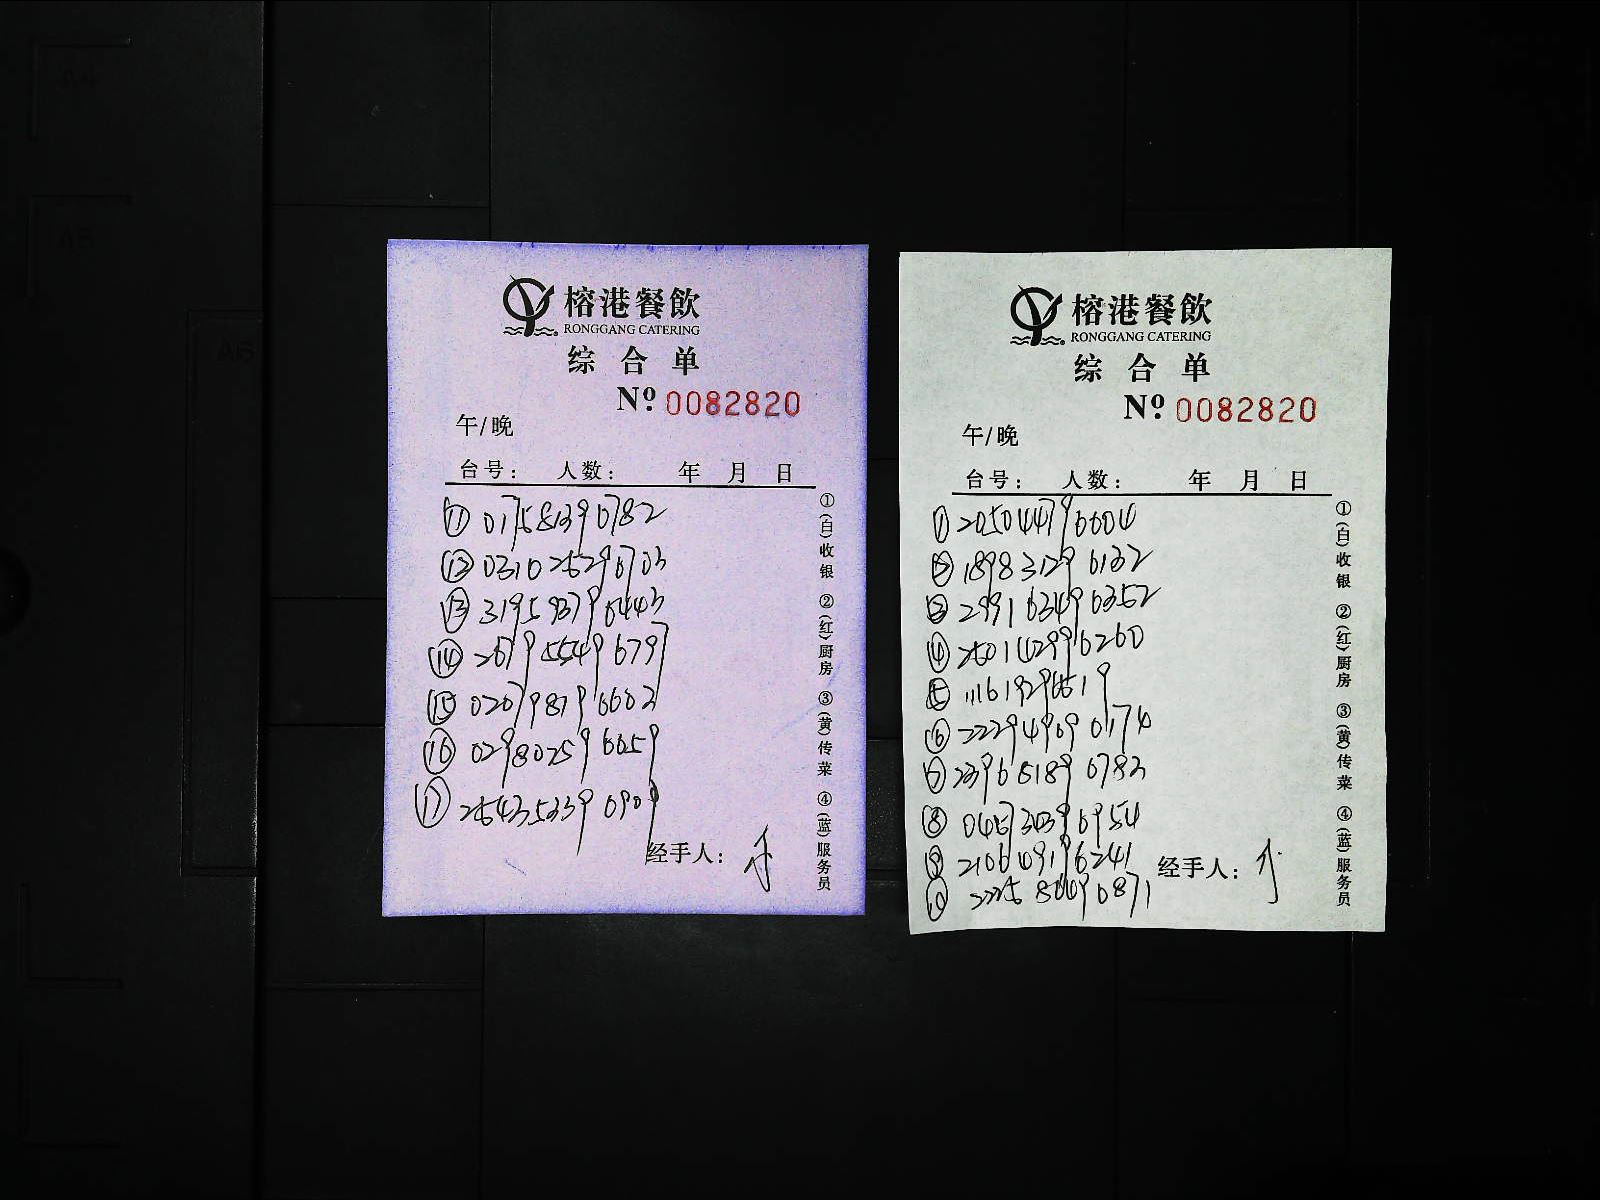 榕港餐飲
RONGGANG CATERING
综合单
№ 0082820
午/晚
台号： 人数： 年 月 日
⑪ 017581390782
⑫ 031025290703
⑬ 319593790443
⑭ 267955496797
⑮ 020798796602
⑯ 029802596659
⑰ 254353390909
经手人：
①(白)收银 ②(红)厨房 ③(黄)传菜 ④(蓝)服务员
榕港餐飲
RONGGANG CATERING
综合单
№ 0082820
午/晚
台号： 人数： 年 月 日
① 205044796604
② 189831296132
③ 299163496352
④ 250142996260
⑤ 111619296619
⑥ 222949090174
⑦ 239681890783
⑧ 046730396954
⑨ 2106109196241
⑩ 222580090871
经手人：
①(白)收银 ②(红)厨房 ③(黄)传菜 ④(蓝)服务员